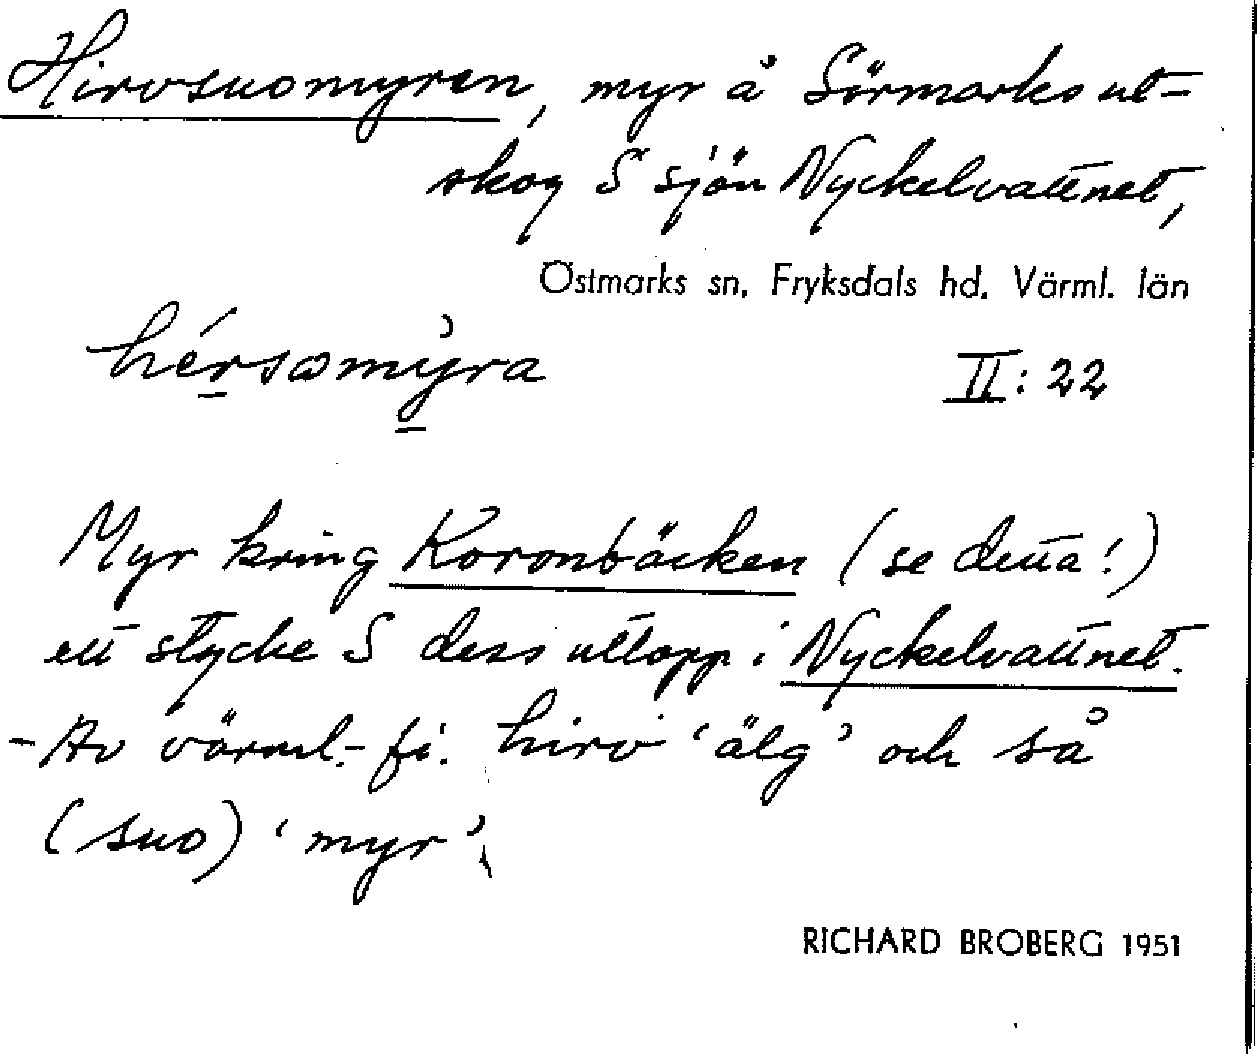 Hirvsuomyren, myr å Sörmarks ut-
skog S sjön Nyckelvattnet,
Östmarks sn, Fryksdals hd. Värml. län
hérsωmy̠ra
II: 22
Myr kring Koronbäcken (se detta!)
ett stycke S dess utlopp i Nyckelvattnet.
- Av värml.-fi. hirv 'älg' och så
(suo) 'myr'
RICHARD BROBERG 1951